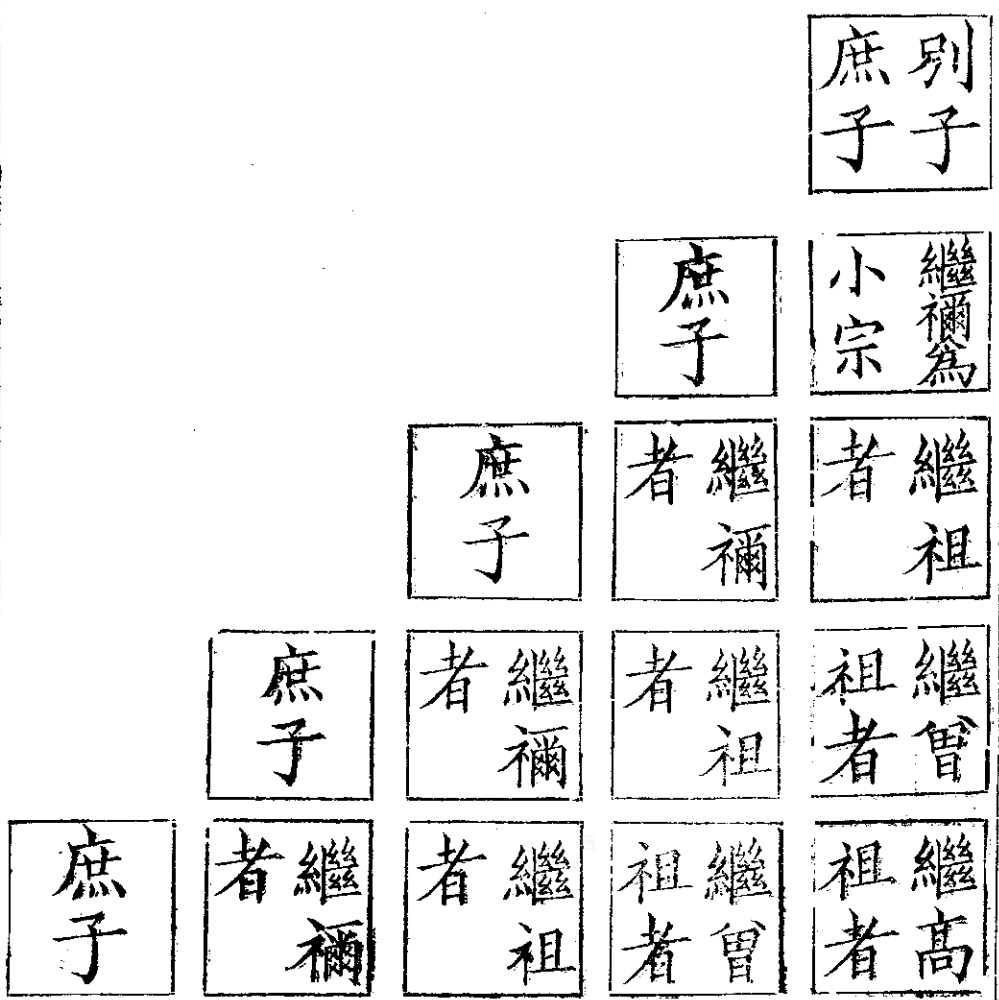 別子
庶子
繼禰爲
小宗
庶子
繼祖
者
繼禰
者
庶子
繼曾
祖者
繼祖
者
繼禰
者
庶子
繼高
祖者
繼曾
祖者
繼祖
者
繼禰
者
庶子